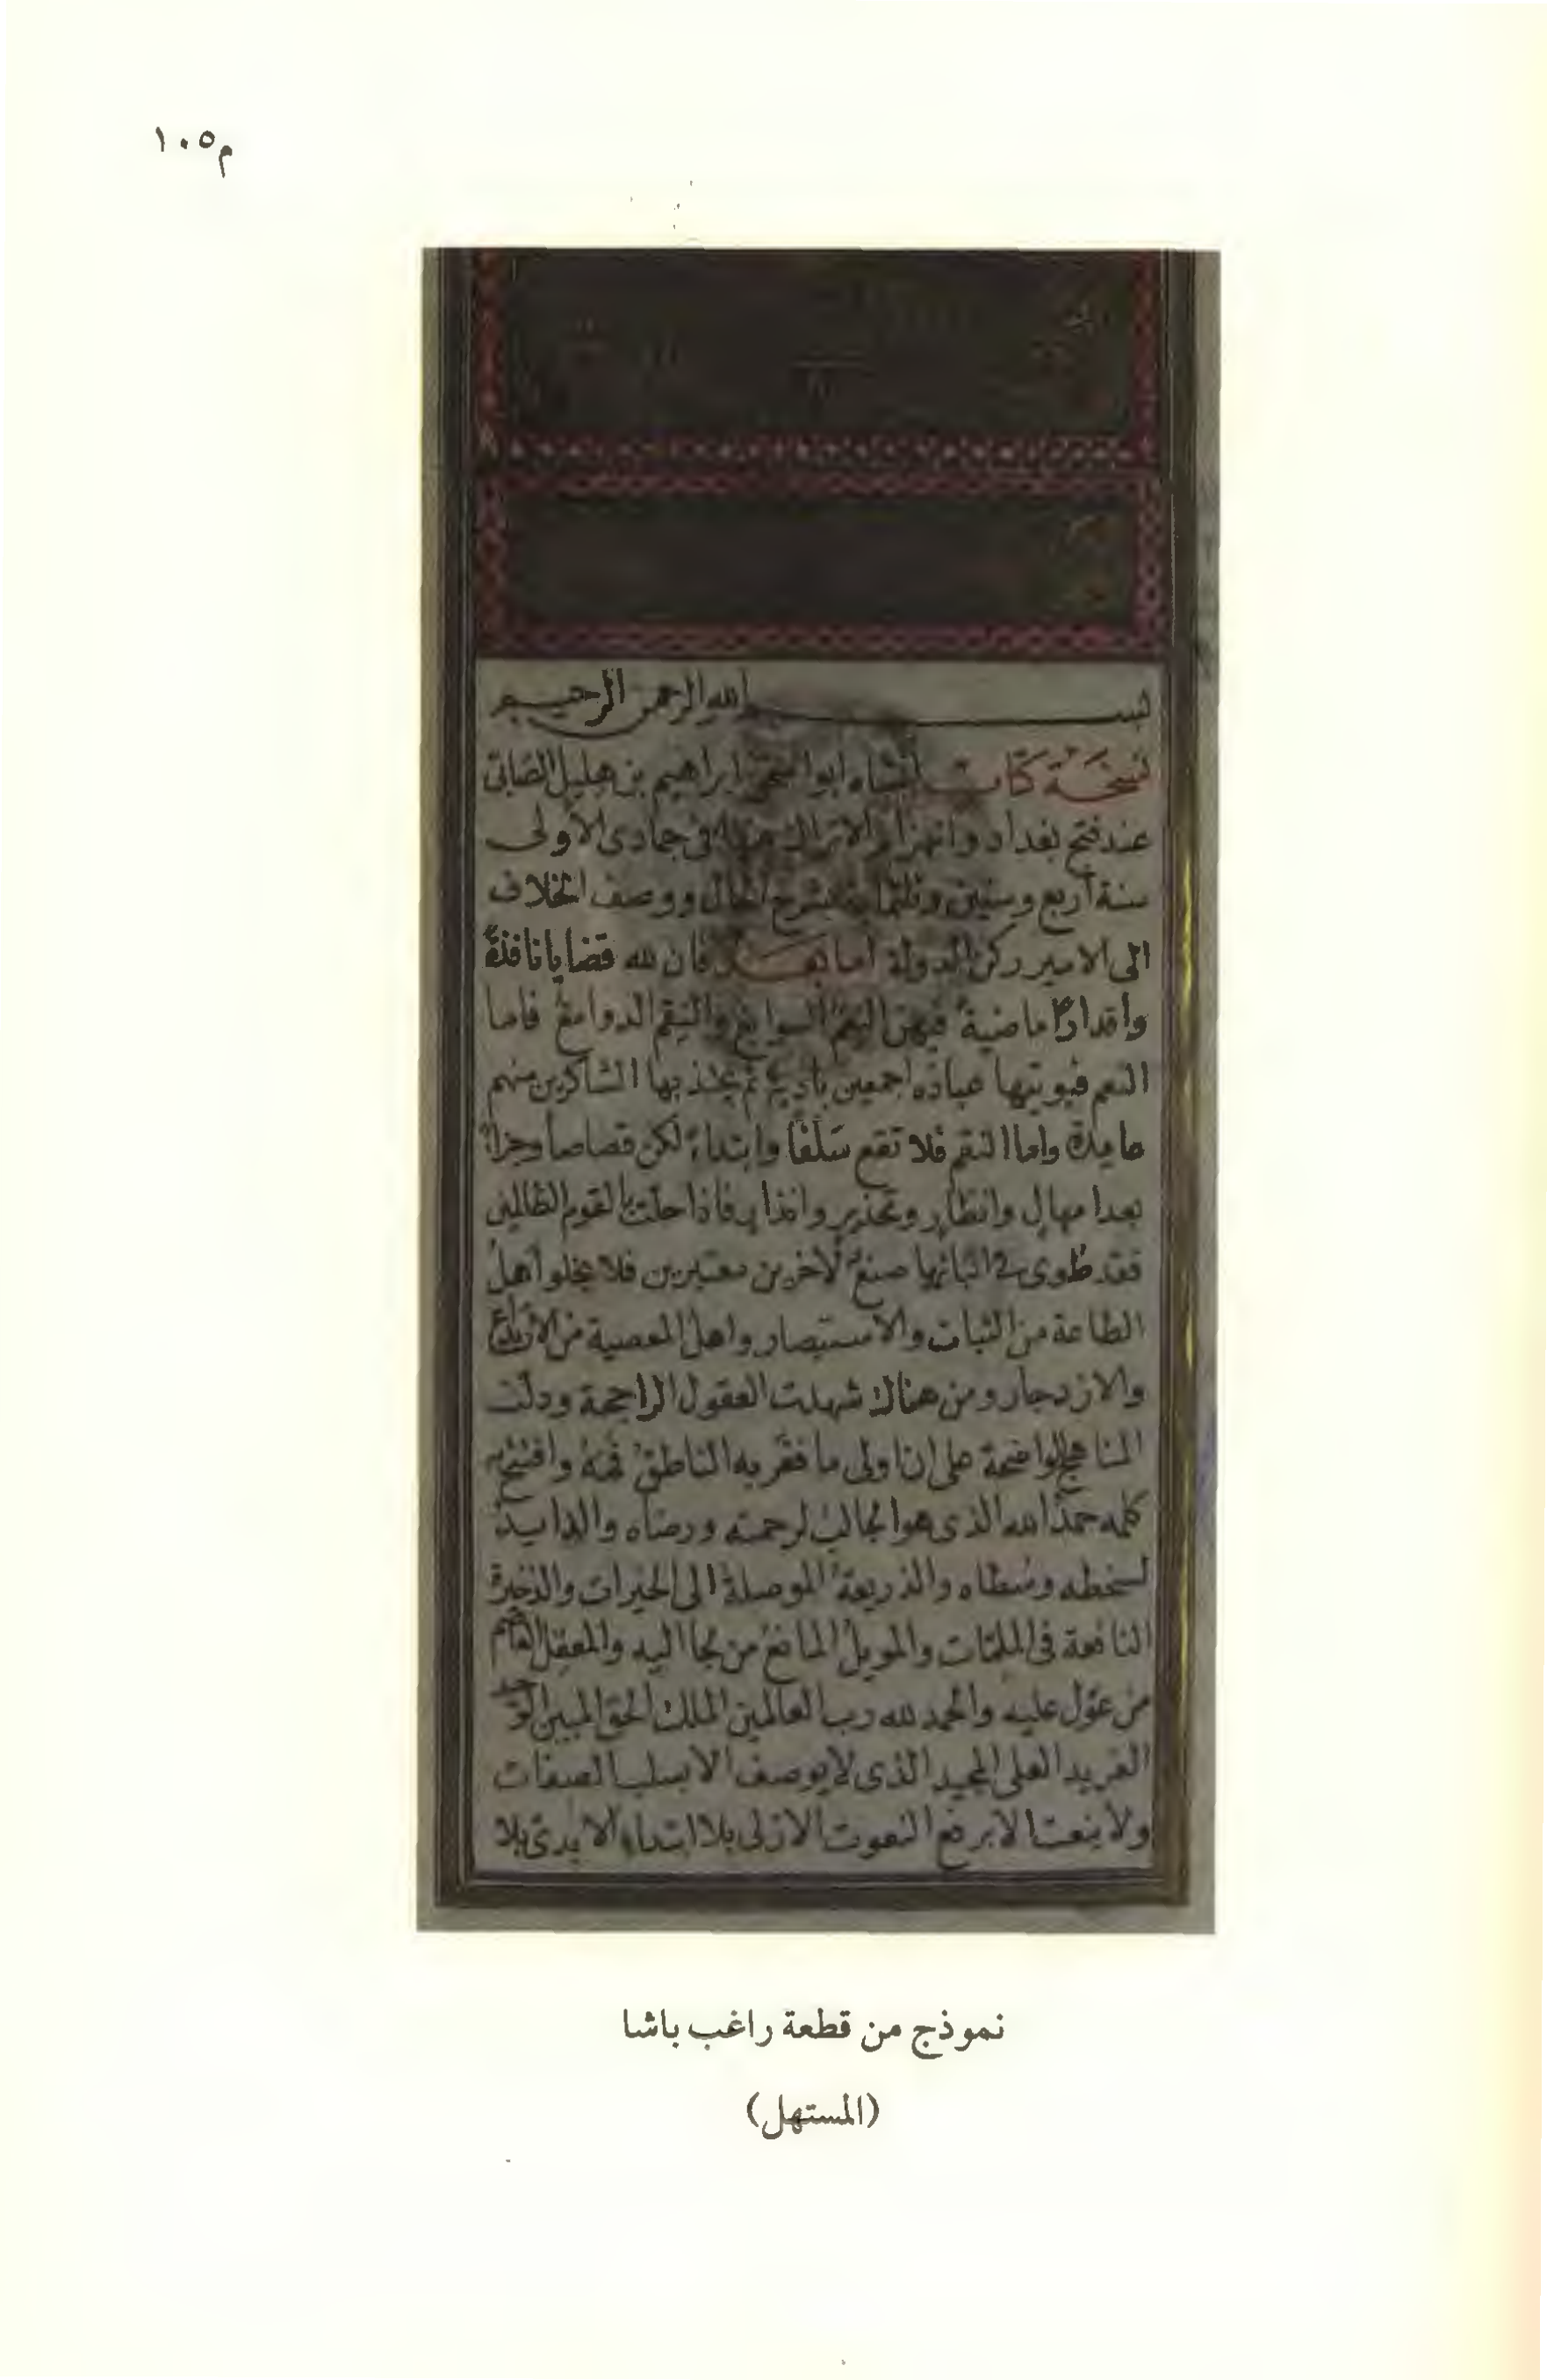 م١٠٥
بسم الله الرحمن الرحيم
نسخة كتاب أنشاه ابو اسحق ابراهيم بن هليل الصابى
عند فتح بغداد وانهزام الاتراك عنها فى جمادى الأولى
سنة أربع وستين وثلثماية بشرح الحال ووصف الخلاف
الى الامير ركن الدولة اما بعد فان لله قضايا نافذة
وأقدارًا ماضية فيهن النعم السوابغ والنقم الدوامغ فاما
النعم فيوتيها عباده اجمعين بادية ثم بها الشاكرين منهم
عايدة واما النقم فلا تقع سَلَفًا وابتداءً لكن قصاصا وجزاءً
بعد امهال وانظار وتحذير وانذار فاذا حلت بالقوم الظالمين
فقد طوى فى اثنائها صنعٌ لآخرين معتبرين فلا يخلو أهل
الطاعة من الثبات والاستبصار واهل المعصية من الارتداع
والازدجار ومن هناك شهدت العقول الراجحة ودلت
المناهج الواضحة على ان اولى ما فغر به الناطق فمه وافتتح به
كلمه حمد الله الذى هو الجالب لرحمته ورضاه والذايد
لسخطه وسطاه والذريعة الموصلة الى الخيرات والذخيرة
النافعة فى الملمّات والمويل المانع من لجا اليه والمعقل العاصم
من عوّل عليه والحمد لله رب العالمين الملك الحق المبين الوحيد
الفريد العلى المجيد الذى لا يوصف الا بسلب الصفات
ولا ينعت الا برفع النعوت الازلى بلا ابتداء الابدىّ بلا
نموذج من قطعة راغب باشا
(المستهل)